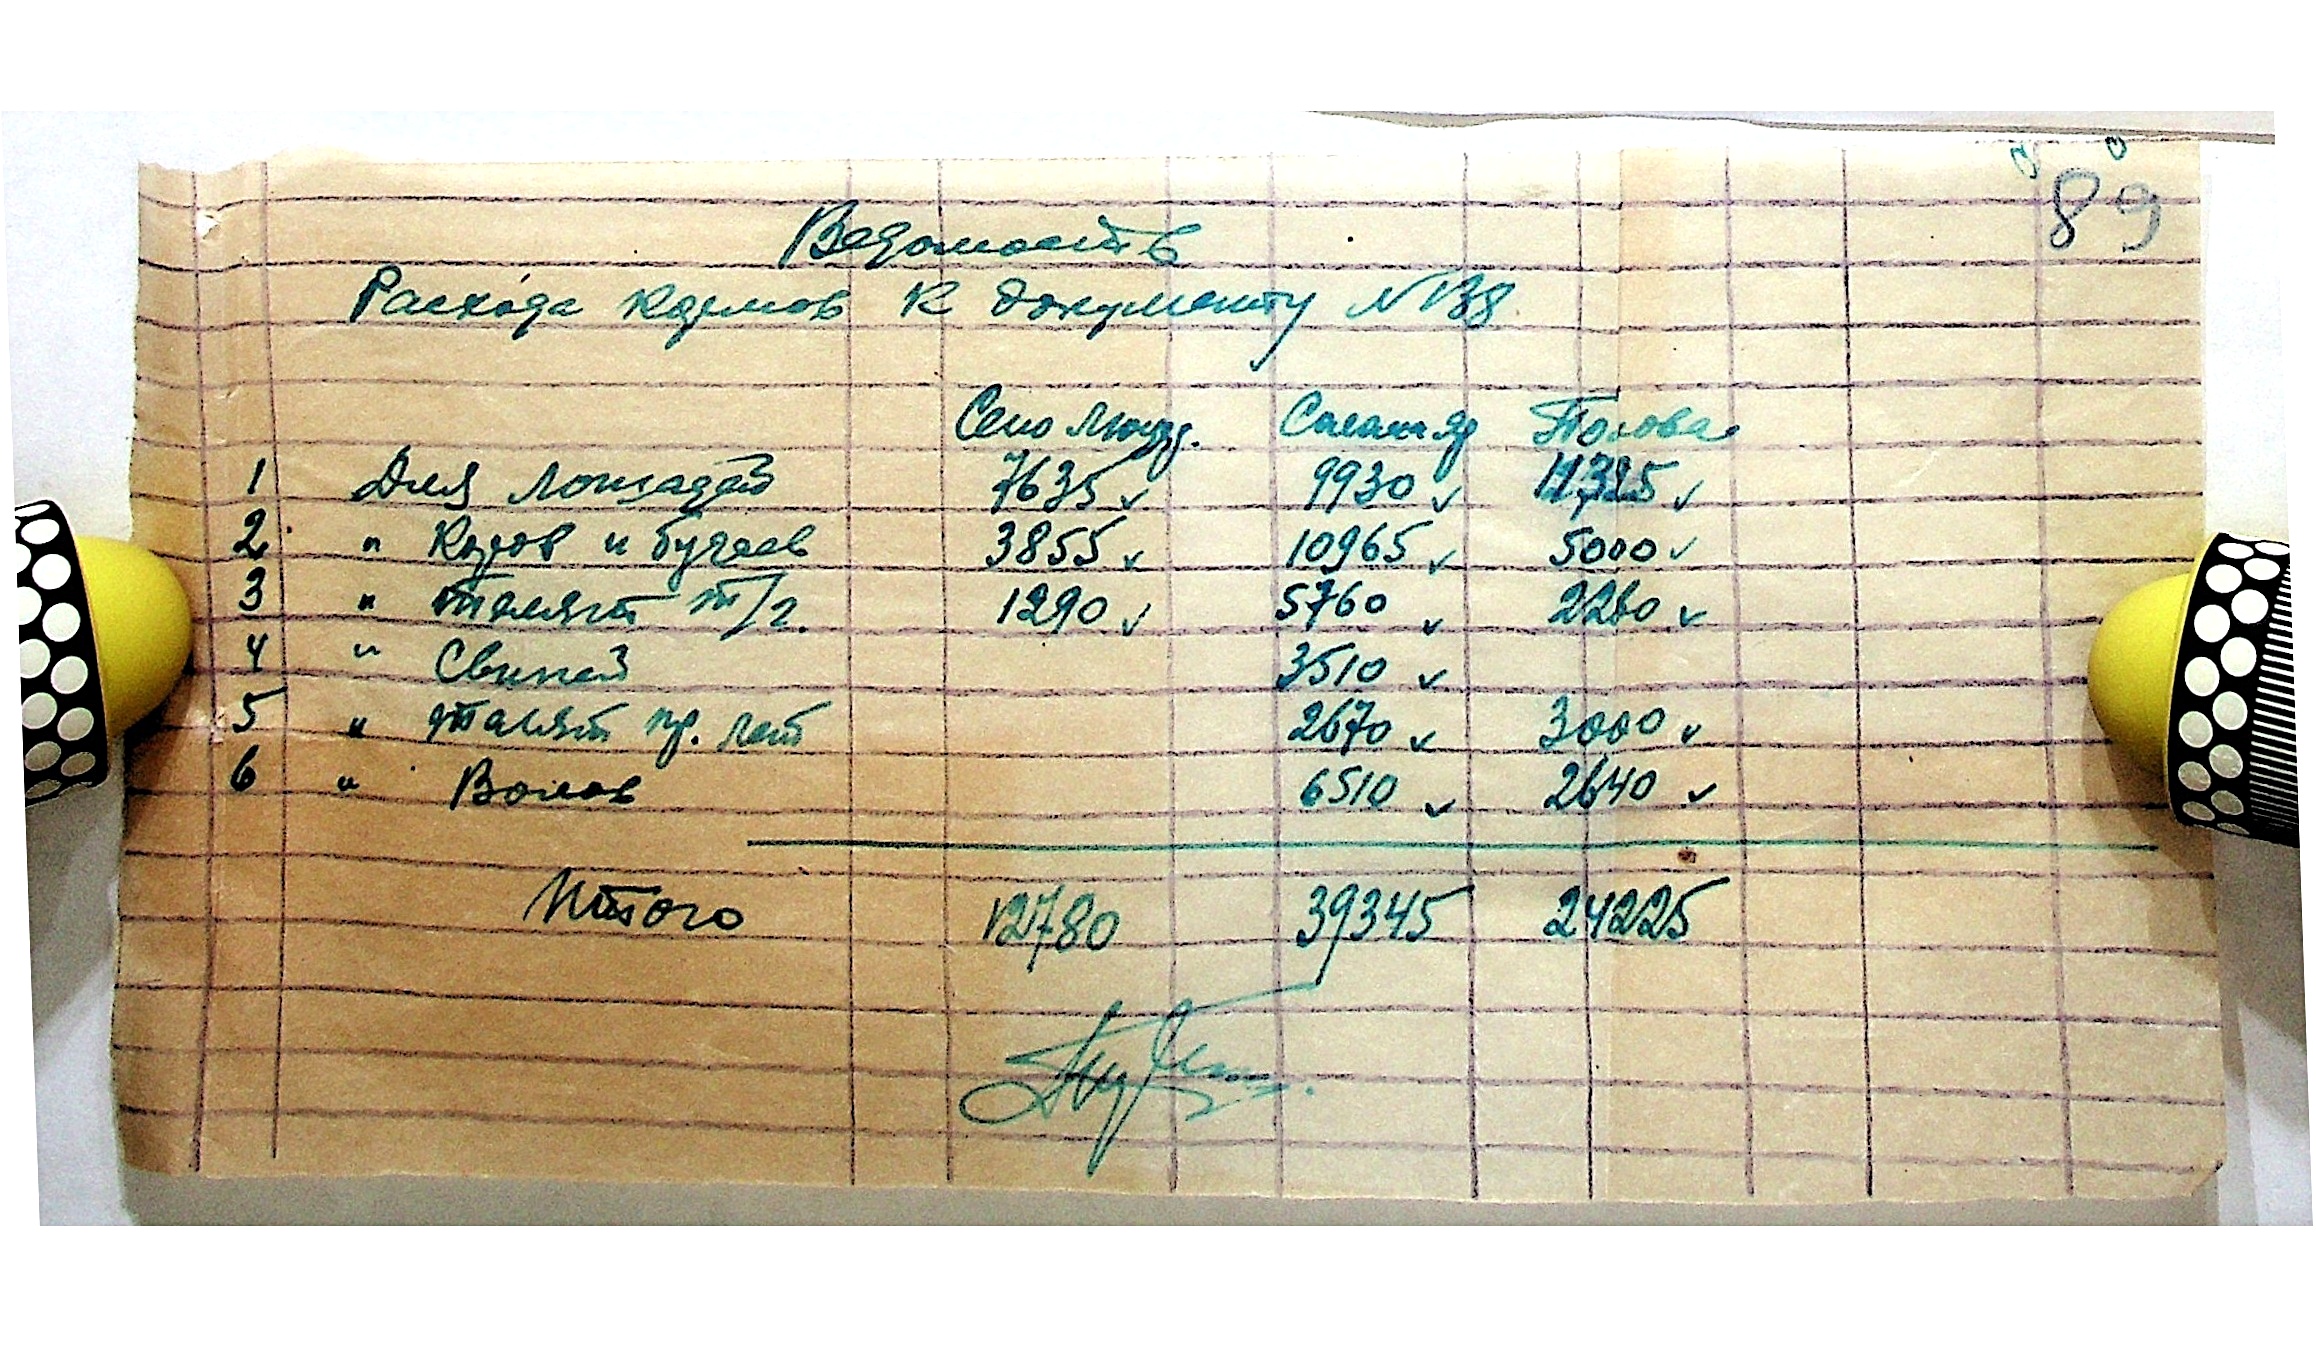 89
Ведомость
Расхода кормов к документу №138
Сено Люцер. Солом яр Полова
1 Для лошадей 7635 ✓ 9930 ✓ 11325 ✓
2 " Коров и бугаев 3855 ✓ 10965 ✓ 5000 ✓
3 " телят т/г. 1290 ✓ 5760 ✓ 2260 ✓
4 " Свиней 3510 ✓
5 " телят пр. лет 2670 ✓ 3000 ✓
6 " Волов 6510 ✓ 2640 ✓
Итого 12780 39345 24225